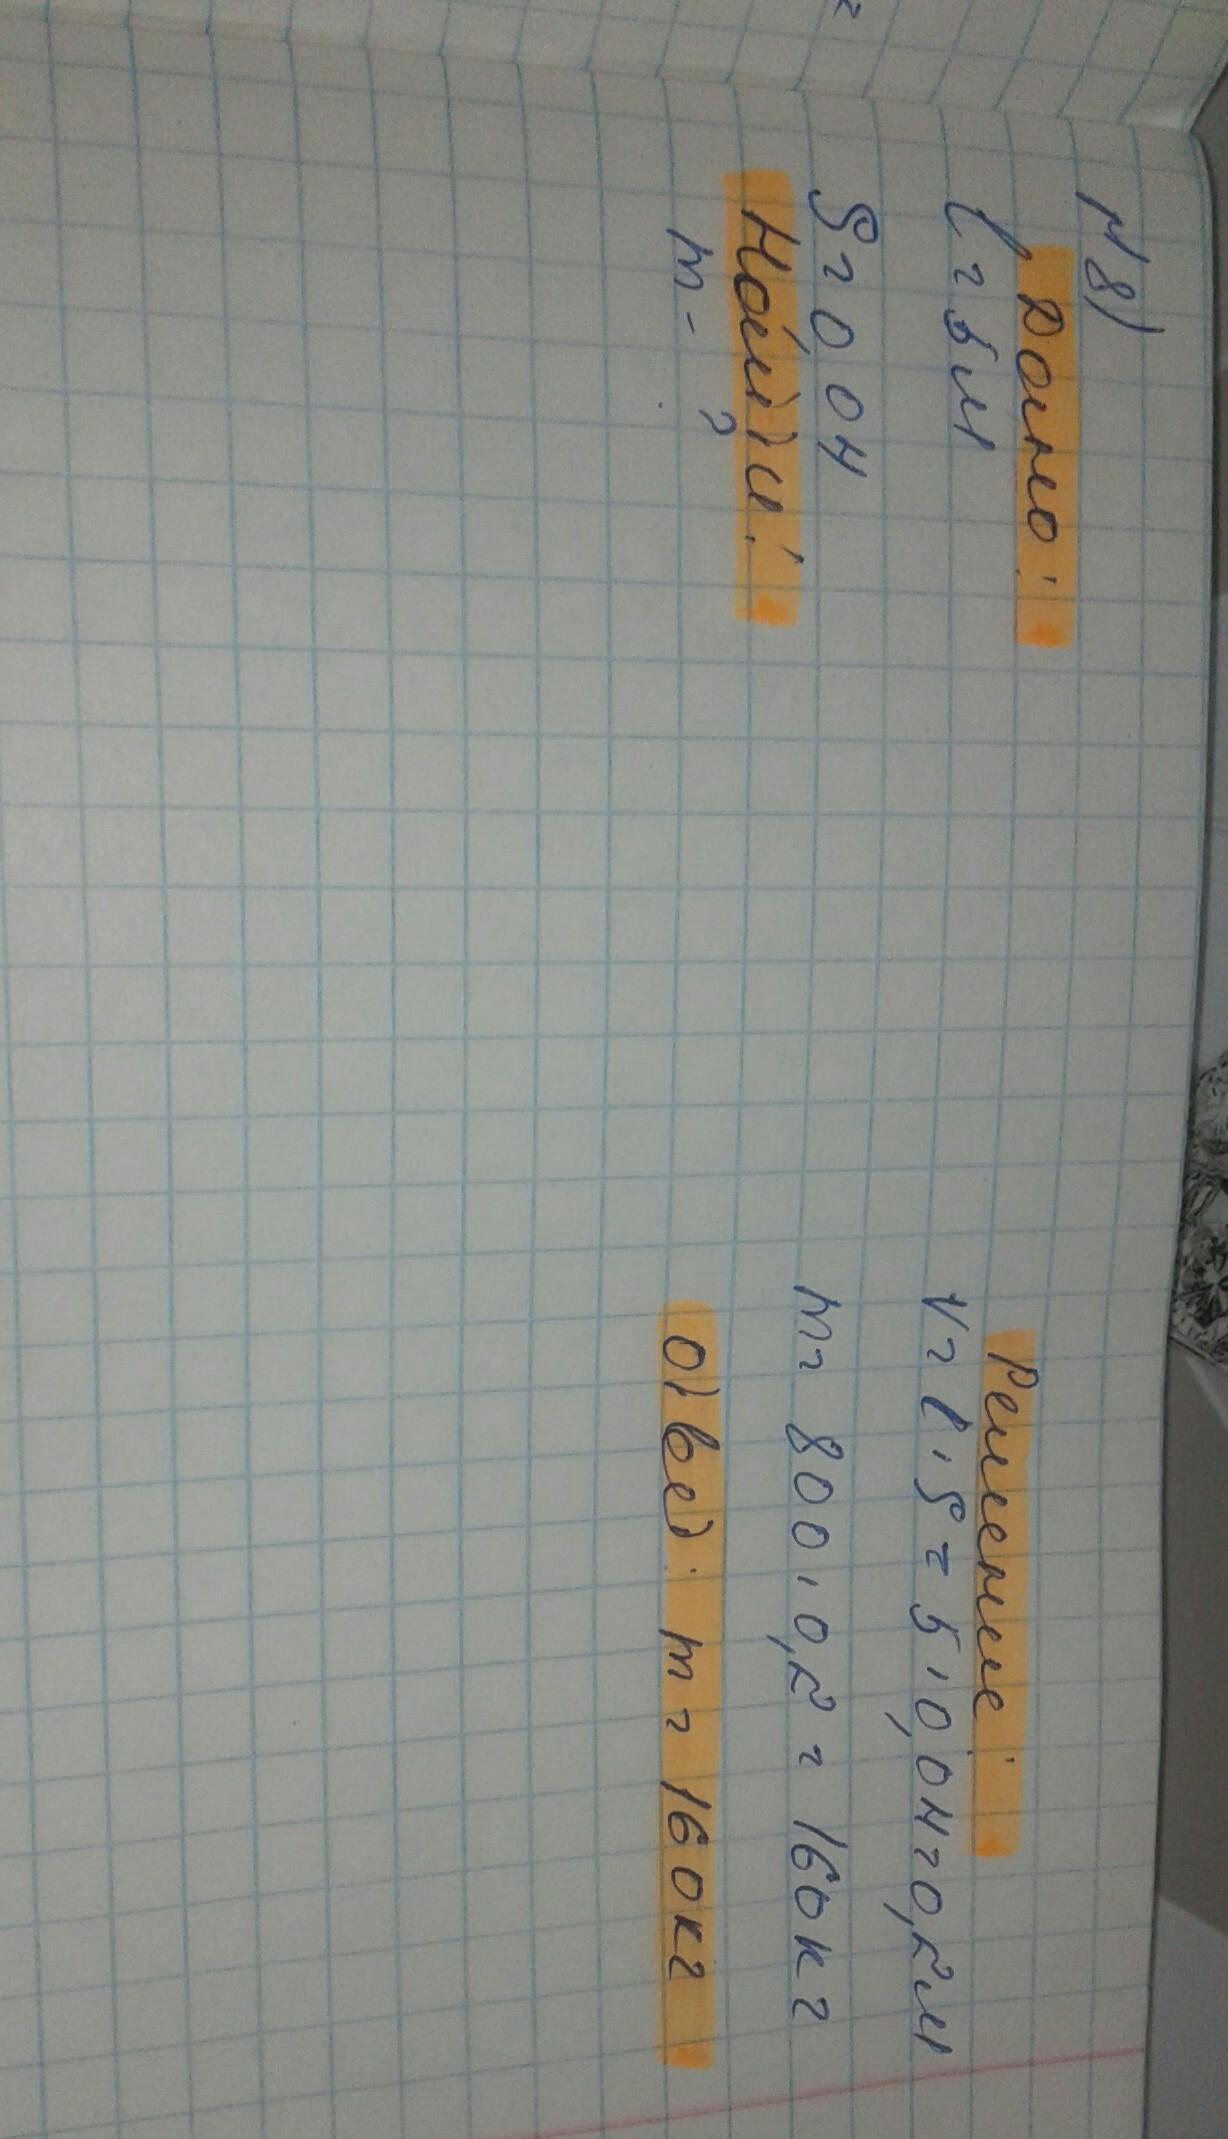 N8)
Дано:
l = 5м
S = 0 04
Найти:
m - ?
Решение:
V = l · S = 5 · 0,04 = 0,2м
m = 800 · 0,2 = 160кг
Ответ: m = 160кг